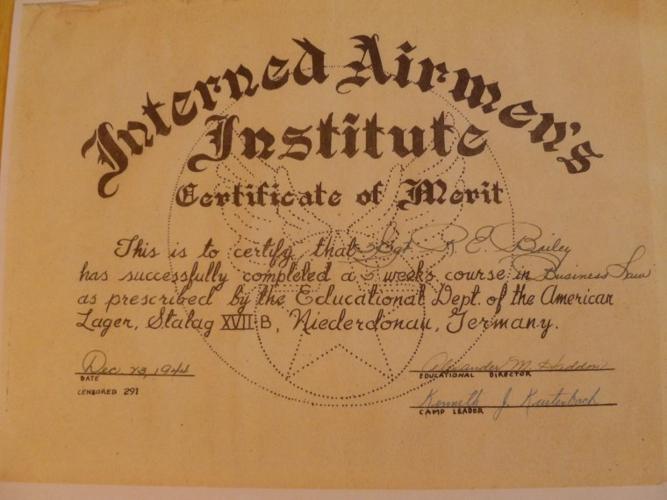 Interned Airmen's
Institute
Certificate of Merit
This is to certify that Sgt R E Bailey
has successfully completed a 5 weeks course in Business Law
as prescribed by the Educational Dept. of the American
Lager, Stalag XVII-B, Niederdonau, Germany.
Dec 23, 1944
DATE
CENSORED 291
Alexander M. Haddon
EDUCATIONAL DIRECTOR
Kenneth J. Kurtenbach
CAMP LEADER